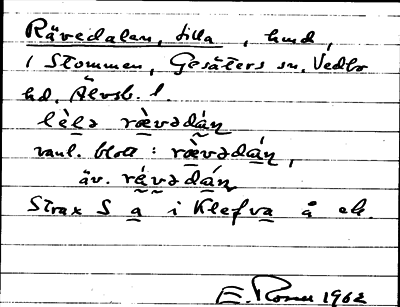 Rävedalen, lilla, hmd,
i Stommen, Gesäters sn, Vedbo
hd, Älvsb. l.
lὲlə rὰvədán
vanl. blott : rὰvədán,
äv. rávədán
Strax S a i Klefva å ek.
E. Rosen 1962